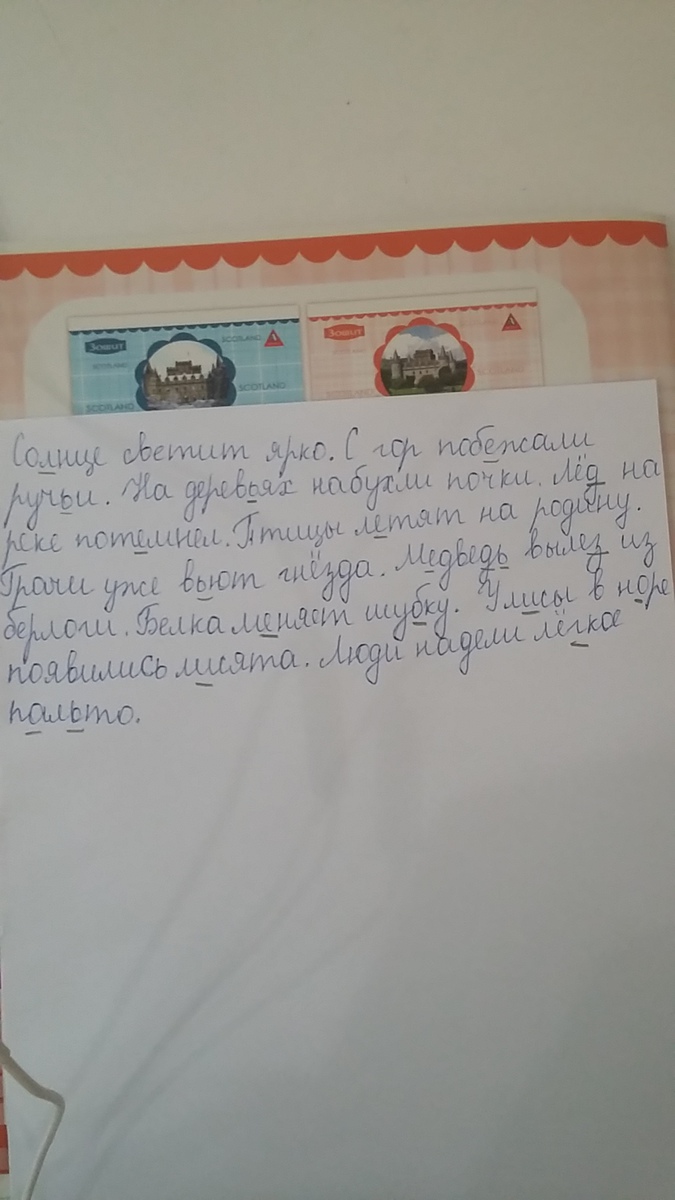 Зошит
SCOTLAND
SCOTLAND
SCOTLAND
Зошит
SCOTLAND
Солнце светит ярко. С гор побежали
ручьи. На деревьях набухли почки. Лёд на
реке потемнел. Птицы летят на родину.
Грачи уже вьют гнёзда. Медведь вылез из
берлоги. Белка меняет шубку. У лисы в норе
появились лисята. Люди надели лёгкое
пальто.